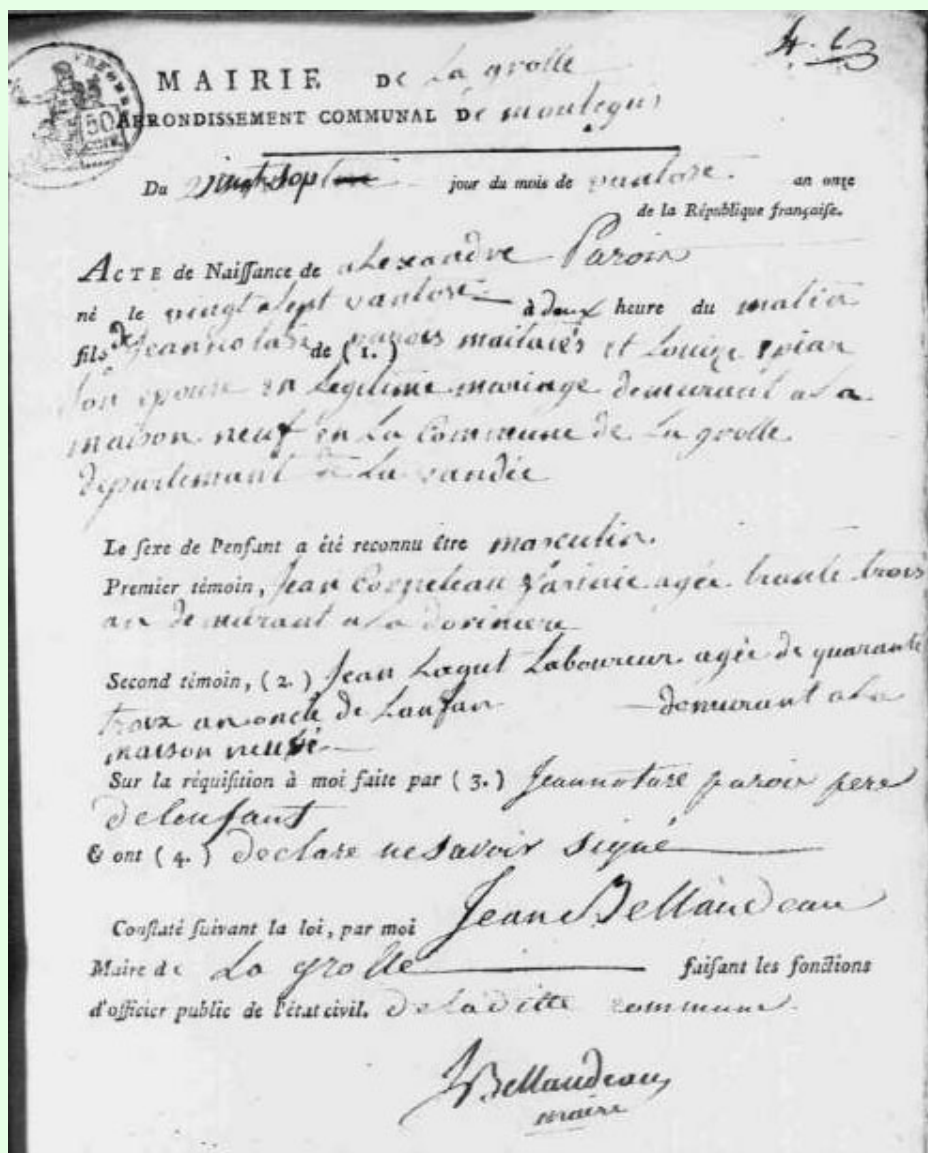 MAIRIE DE La grolle
ARRONDISSEMENT COMMUNAL De montegu
Du Vingt sept jour du mois de vantose an onze
de la République française.
ACTE de Naissance de alexandre Parois
né le vingt sept vantose à deux heure du matin
fils de Jean de (1.) parois et Louize
son epouse en Legitime mariage demurant a La
maison neuf en La Commune de La grolle
departemant de La vandée
Le sexe de l'enfant a été reconnu être masculin.
Premier témoin, Jean agée trante trois
an demurant a La
Second témoin, (2.) Jean Laboureur agée de quarante
troix an oncle de Lanfan demurant a La
maison neuve
Sur la réquisition à moi faite par (3.) Jean parois pere
de lenfant
& ont (4.) declare ne savoir signé
Constaté suivant la loi, par moi Jean Bellaudeau
Maire de La grolle faisant les fonctions
d'officier public de l'état civil. de la ditte commune.
JBellaudeau
maire